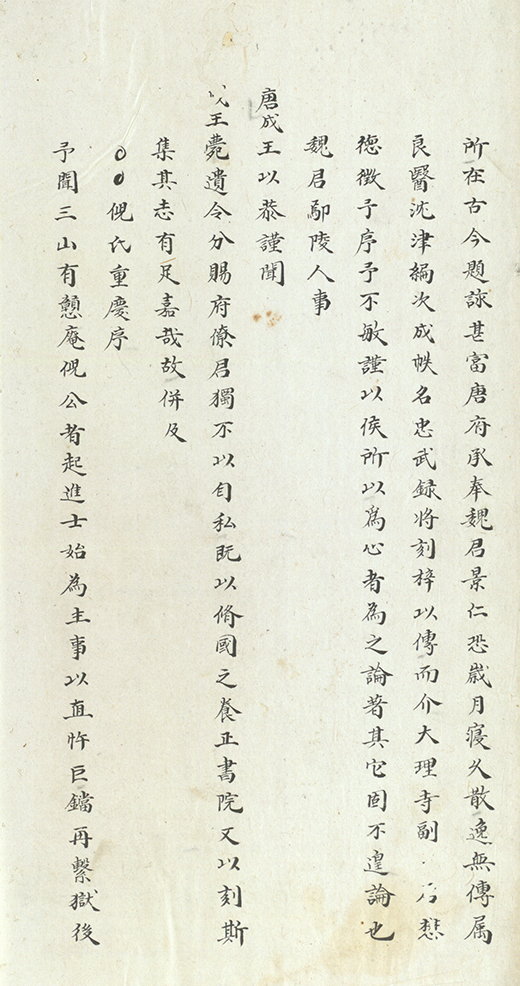 所在古今題詠甚富唐府承奉魏君景仁恐嵗月寖久散逸無傳属
良醫沈津編次成帙名忠武録将刻梓以傳而介大理寺副懋
德徵予序予不敏謹以侯所以爲心者為之論著其它固不遑論也
魏君鄢陵人事
唐成王以恭謹聞
王薨遺令分賜府僚君獨不以自私既以脩國之養正書院又以刻斯
集其志有足嘉哉故併及
〇〇倪氏重慶序
予聞三山有戇庵倪公者起進士始為主事以直忤巨鐺再繫獄後